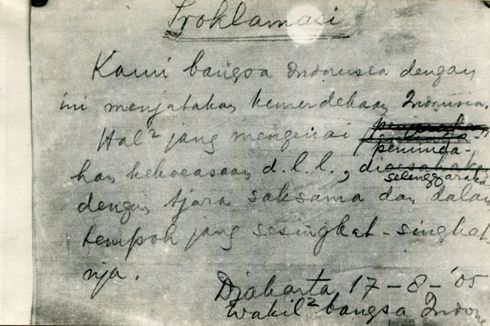 Proklamasi
Kami bangsa Indonesia dengan
ini menjatakan kemerdekaan Indonesia.
Hal² jang mengenai
peminda-
han kekoeasaan d.l.l.,
selenggarakan
dengan tjara saksama dan dalam
tempoh jang sesingkat-singkat
nja.
Djakarta, 17-8-'05
Wakil² bangsa Indone